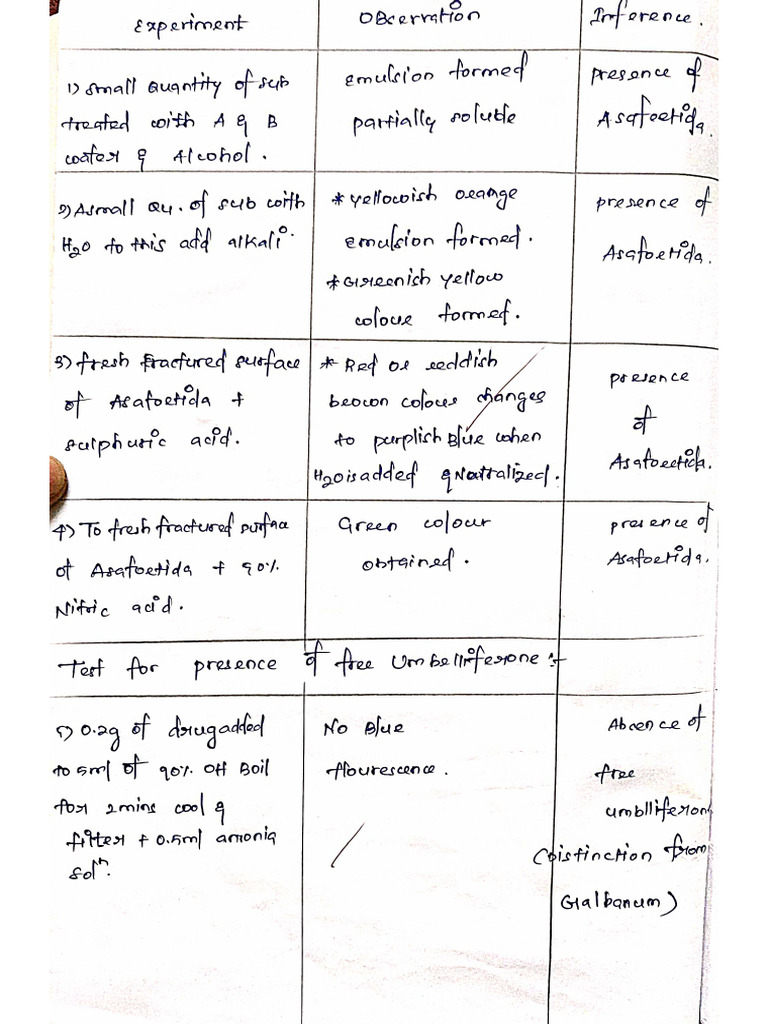 Experiment
Obserration
Inference.
1) Small Quantity of sub
treated with A & B
water & Alcohol.
emulsion formed
partially soluble
presence of
Asafoetida.
2) A small Qu. of sub with
H2O to this add alkali.
* Yellowish orange
emulsion formed.
* Greenish yellow
colour formed.
presence of
Asafoetida.
3) fresh fractured surface
of Asafoetida +
sulphuric acid.
* Red or reddish
brown colour changes
to purplish Blue when
H2O is added & Nutralized.
presence
of
Asafoectida.
4) To fresh fractured surface
of Asafoetida + 90%
Nitric acid.
Green colour
obtained.
presence of
Asafoetida.
Test for presence of free Umbelliferone :-
5) 0.2g of drug added
to 5ml of 90% OH Boil
for 2mins cool &
filter + 0.5ml amonia
soln.
No Blue
flourescence.
Absence of
free
umblliferon
(Distinction from
Galbanum)